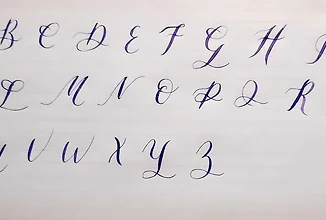 B C D E F G H
L M N O P Q R
V W X Y Z